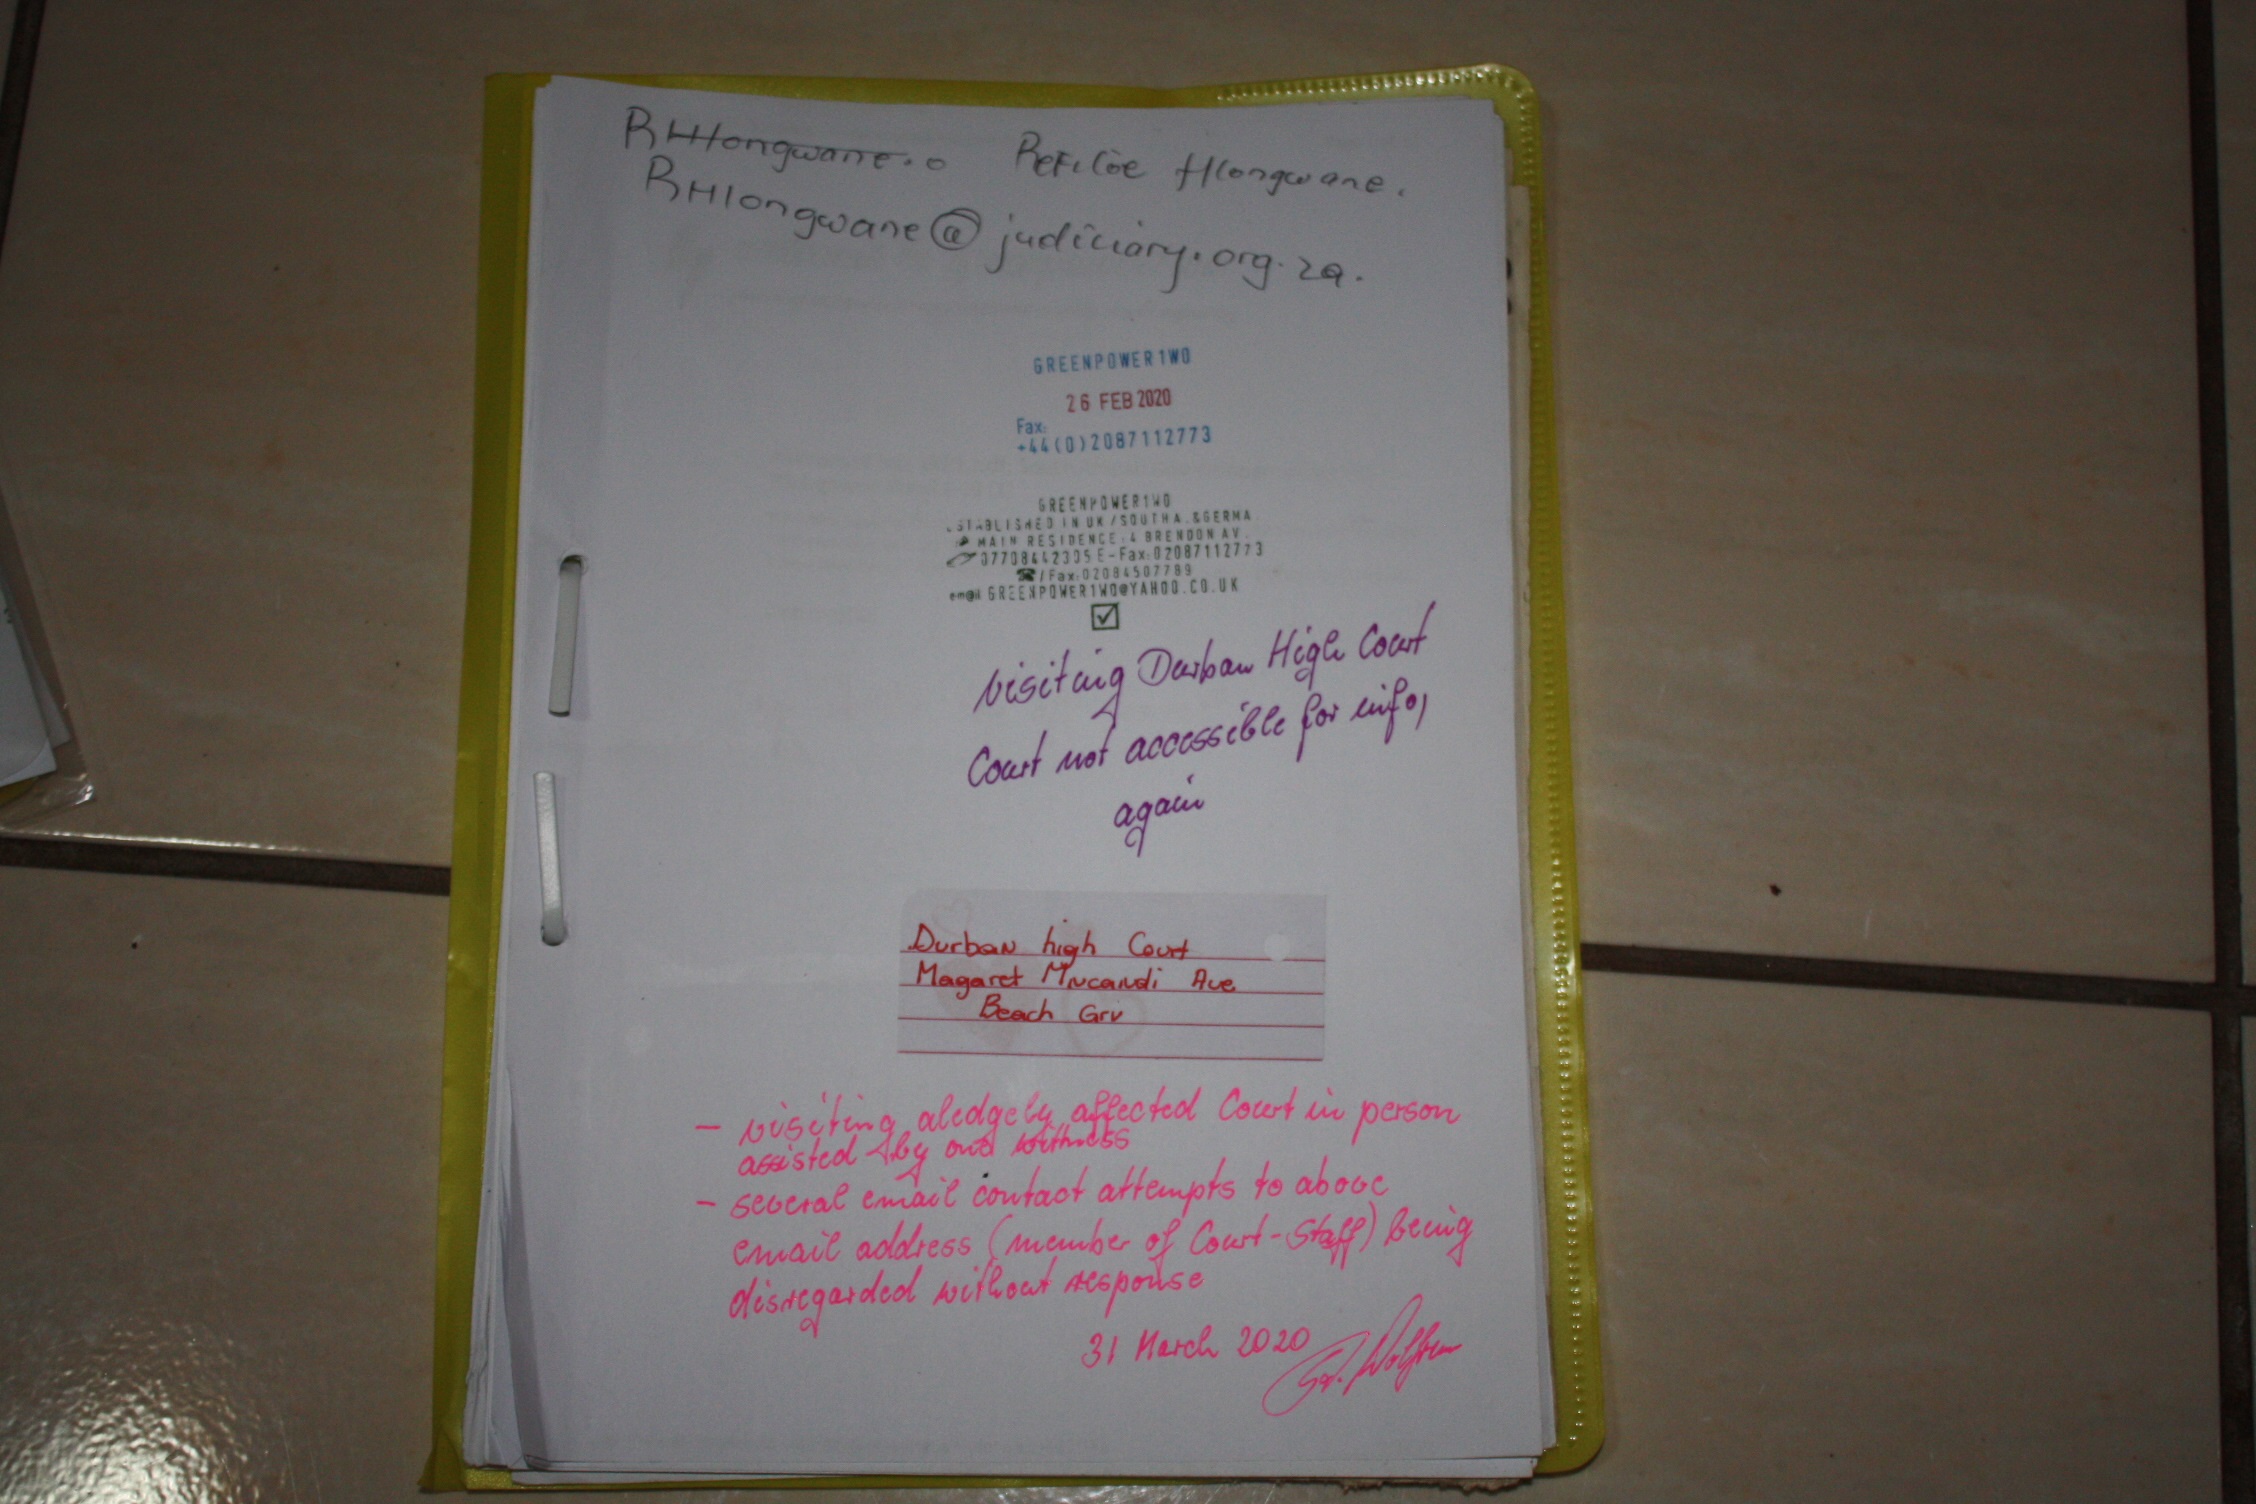 RHlongwane.o Refiloe Hlongwane.
RHlongwane@judiciary.org.za.
GREENPOWER1WO
26 FEB 2020
Fax:
+44(0)2087112773
GREENPOWER1WO
ESTABLISHED IN UK/SOUTHA.&GERMA
MAIN RESIDENCE:4 BRENDON AV.
07708442305 E-Fax:02087112773
/Fax:02084507789
em@il GREENPOWER1WO@YAHOO.CO.UK
visiting Durban High Court
Court not accessible for info,
again
Durban high Court
Magaret Mncandi Ave
Beach Grv
- visiting aledgely affected Court in person
assisted by one witness
- several email contact attempts to above
email address (member of Court-Staff) being
disregarded without response
31 March 2020